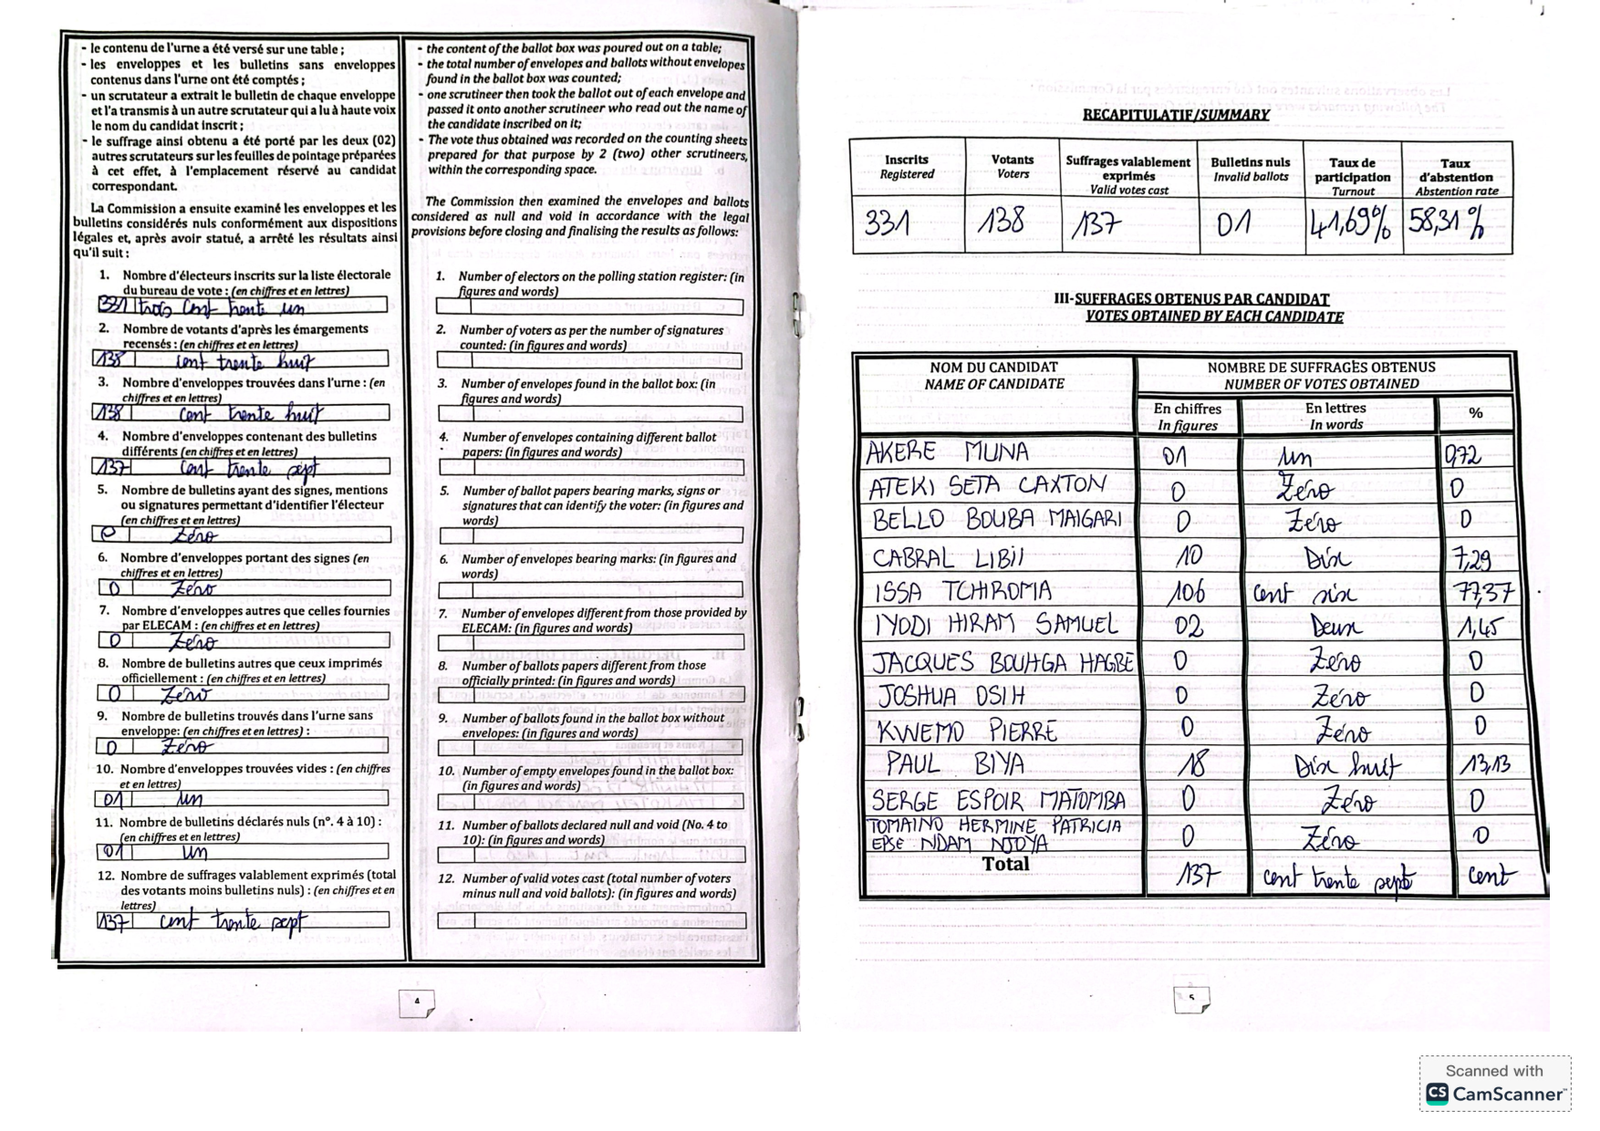 - le contenu de l'urne a été versé sur une table ;
- les enveloppes et les bulletins sans enveloppes
contenus dans l'urne ont été comptés ;
- un scrutateur a extrait le bulletin de chaque enveloppe
et l'a transmis à un autre scrutateur qui a lu à haute voix
le nom du candidat inscrit ;
- le suffrage ainsi obtenu a été porté par les deux (02)
autres scrutateurs sur les feuilles de pointage préparées
à cet effet, à l'emplacement réservé au candidat
correspondant.
La Commission a ensuite examiné les enveloppes et les
bulletins considérés nuls conformément aux dispositions
légales et, après avoir statué, a arrêté les résultats ainsi
qu'il suit :
1. Nombre d'électeurs inscrits sur la liste électorale
du bureau de vote : (en chiffres et en lettres)
331 trois cent trente un
2. Nombre de votants d'après les émargements
recensés : (en chiffres et en lettres)
138 cent trente huit
3. Nombre d'enveloppes trouvées dans l'urne : (en
chiffres et en lettres)
138 cent trente huit
4. Nombre d'enveloppes contenant des bulletins
différents (en chiffres et en lettres)
137 cent trente sept
5. Nombre de bulletins ayant des signes, mentions
ou signatures permettant d'identifier l'électeur
(en chiffres et en lettres)
0 Zéro
6. Nombre d'enveloppes portant des signes (en
chiffres et en lettres)
0 Zéro
7. Nombre d'enveloppes autres que celles fournies
par ELECAM : (en chiffres et en lettres)
0 Zéro
8. Nombre de bulletins autres que ceux imprimés
officiellement : (en chiffres et en lettres)
0 Zéro
9. Nombre de bulletins trouvés dans l'urne sans
enveloppe: (en chiffres et en lettres) :
0 Zéro
10. Nombre d'enveloppes trouvées vides : (en chiffres
et en lettres)
01 un
11. Nombre de bulletins déclarés nuls (n°. 4 à 10) :
(en chiffres et en lettres)
01 un
12. Nombre de suffrages valablement exprimés (total
des votants moins bulletins nuls) : (en chiffres et en
lettres)
137 cent trente sept
- the content of the ballot box was poured out on a table;
- the total number of envelopes and ballots without envelopes
found in the ballot box was counted;
- one scrutineer then took the ballot out of each envelope and
passed it onto another scrutineer who read out the name of
the candidate inscribed on it;
- The vote thus obtained was recorded on the counting sheets
prepared for that purpose by 2 (two) other scrutineers,
within the corresponding space.
The Commission then examined the envelopes and ballots
considered as null and void in accordance with the legal
provisions before closing and finalising the results as follows:
1. Number of electors on the polling station register: (in
figures and words)
2. Number of voters as per the number of signatures
counted: (in figures and words)
3. Number of envelopes found in the ballot box: (in
figures and words)
4. Number of envelopes containing different ballot
papers: (in figures and words)
5. Number of ballot papers bearing marks, signs or
signatures that can identify the voter: (in figures and
words)
6. Number of envelopes bearing marks: (in figures and
words)
7. Number of envelopes different from those provided by
ELECAM: (in figures and words)
8. Number of ballots papers different from those
officially printed: (in figures and words)
9. Number of ballots found in the ballot box without
envelopes: (in figures and words)
10. Number of empty envelopes found in the ballot box:
(in figures and words)
11. Number of ballots declared null and void (No. 4 to
10): (in figures and words)
12. Number of valid votes cast (total number of voters
minus null and void ballots): (in figures and words)
4
RECAPITULATIF/SUMMARY
Inscrits Votants Suffrages valablement Bulletins nuls Taux de Taux
Registered Voters exprimés Invalid ballots participation d'abstention
Valid votes cast Turnout Abstention rate
331 138 137 01 41,69% 58,31%
III-SUFFRAGES OBTENUS PAR CANDIDAT
VOTES OBTAINED BY EACH CANDIDATE
NOM DU CANDIDAT NOMBRE DE SUFFRAGES OBTENUS
NAME OF CANDIDATE NUMBER OF VOTES OBTAINED
En chiffres En lettres %
In figures In words
AKERE MUNA 01 un 0,72
ATEKI SETA CAXTON 0 Zéro 0
BELLO BOUBA MAIGARI 0 Zéro 0
CABRAL LIBII 10 Dix 7,29
ISSA TCHIROMA 106 cent six 77,37
IYODI HIRAM SAMUEL 02 Deux 1,45
JACQUES BOUHGA HAGBE 0 Zéro 0
JOSHUA OSIH 0 Zéro 0
KWEMO PIERRE 0 Zéro 0
PAUL BIYA 18 Dix huit 13,13
SERGE ESPOIR MATOMBA 0 Zéro 0
TOMAINO HERMINE PATRICIA
EPSE NDAM NJOYA 0 Zéro 0
Total 137 cent trente sept cent
5
Scanned with
CS CamScanner